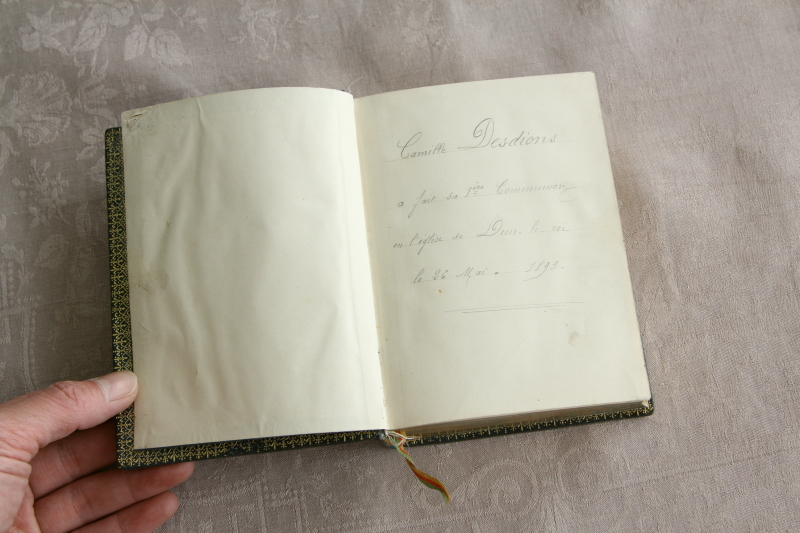 Camille Desdions
a fait sa 1ère Communion
en l'église de Dun-le-
le 26 Mai 1893.